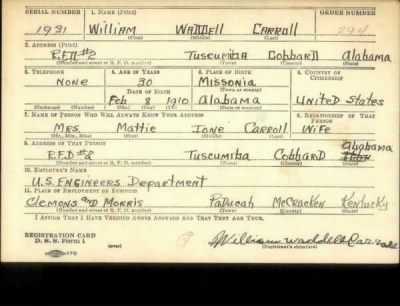 SERIAL NUMBER 1. NAME (Print) ORDER NUMBER
1931 William Waddell Carroll 294
(First) (Middle) (Last)
2. ADDRESS (Print)
R.F.D #2 Tuscumbia Colbard Alabama
(Number and street or R. F. D. number) (Town) (County) (State)
3. TELEPHONE 4. AGE IN YEARS 5. PLACE OF BIRTH 6. COUNTRY OF CITIZENSHIP
None 30 Missonia
DATE OF BIRTH (Town or county)
Feb 8 1910 Alabama United States
(Exchange) (Number) (Mo.) (Day) (Yr.) (State or country)
7. NAME OF PERSON WHO WILL ALWAYS KNOW YOUR ADDRESS 8. RELATIONSHIP OF THAT PERSON
Mrs. Mattie Ione Carroll Wife
(Mr., Mrs., Miss) (First) (Middle) (Last)
9. ADDRESS OF THAT PERSON Alabama
R.F.D #2 Tuscumbia Colbard
(Number and street or R. F. D. number) (Town) (County) (State)
10. EMPLOYER'S NAME
U.S. Engineers Department
11. PLACE OF EMPLOYMENT OR BUSINESS
Clemons and Morris Paducah McCracken Kentucky
(Number and street or R. F. D. number) (Town) (County) (State)
I AFFIRM THAT I HAVE VERIFIED ABOVE ANSWERS AND THAT THEY ARE TRUE.
REGISTRATION CARD
D. S. S. Form 1 (over) William Waddell Carroll
(Registrant's signature)